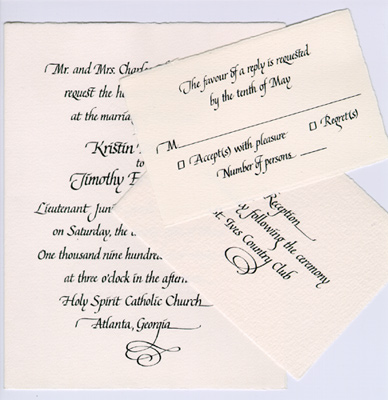 Mr. and Mrs. Charles
request the
at the
Kristin
to
Timothy
Lieutenant
on Saturday, the
One thousand nine hundred
at three o'clock in the
Holy Spirit Catholic Church
Atlanta, Georgia
The favour of a reply is requested
by the tenth of May
M
Accept(s) with pleasure
Regret(s)
Number of persons
Reception
following the ceremony
Ives Country Club